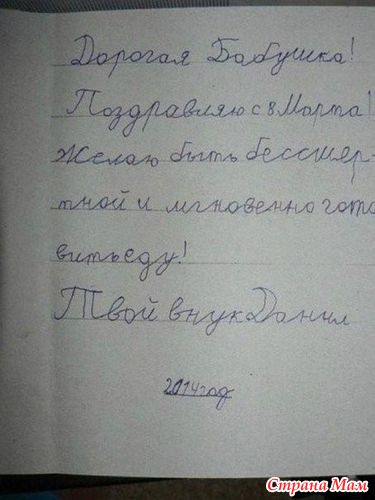 Дорогая Бабушка!
Поздравляю с 8 Марта!
Желаю быть бессмер-
тной и мгновенно гото
вить еду!
Твой внук Данил
2014 год
Страна Мам